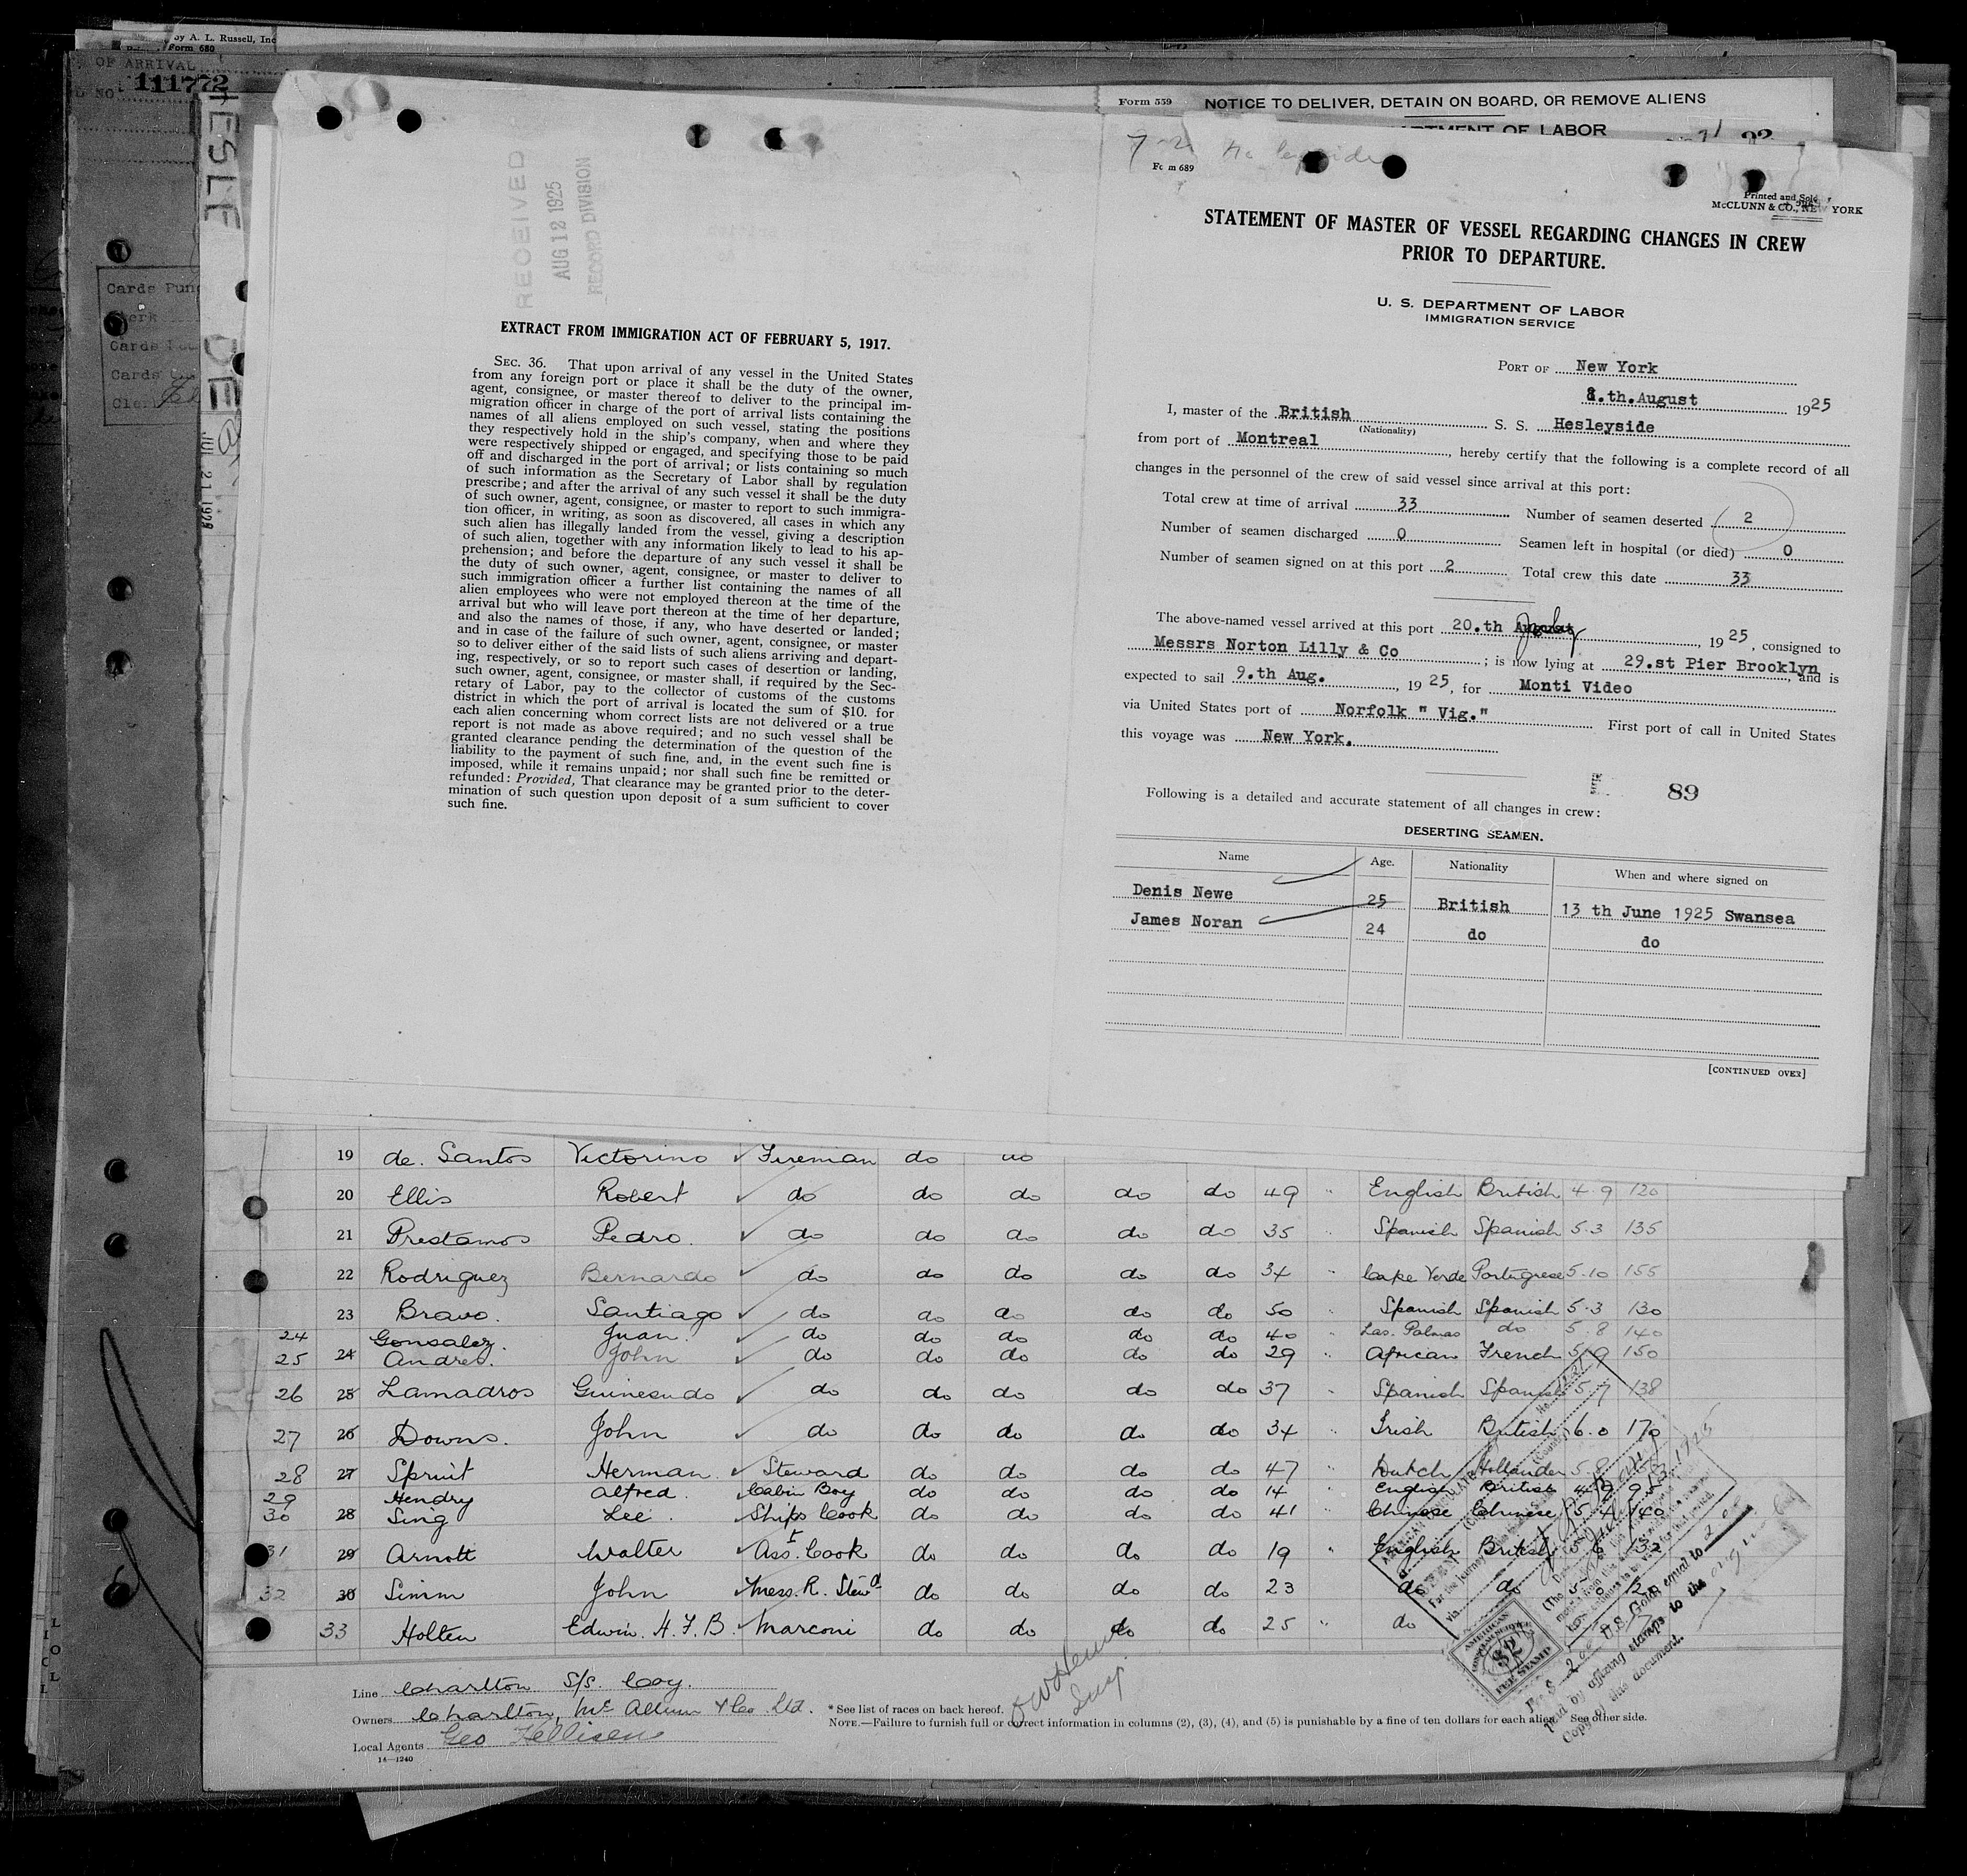 by A. L. Russell, Inc
Form 680
OF ARRIVAL
111772
Form 559 NOTICE TO DELIVER, DETAIN ON BOARD, OR REMOVE ALIENS
OF LABOR
Cards Pun
Clerk
Cards
Cards
Cler
RECEIVED
AUG 12 1925
RECORD DIVISION
EXTRACT FROM IMMIGRATION ACT OF FEBRUARY 5, 1917.
SEC. 36. That upon arrival of any vessel in the United States
from any foreign port or place it shall be the duty of the owner,
agent, consignee, or master thereof to deliver to the principal im-
migration officer in charge of the port of arrival lists containing the
names of all aliens employed on such vessel, stating the positions
they respectively hold in the ship's company, when and where they
were respectively shipped or engaged, and specifying those to be paid
off and discharged in the port of arrival; or lists containing so much
of such information as the Secretary of Labor shall by regulation
prescribe; and after the arrival of any such vessel it shall be the duty
of such owner, agent, consignee, or master to report to such immigra-
tion officer, in writing, as soon as discovered, all cases in which any
such alien has illegally landed from the vessel, giving a description
of such alien, together with any information likely to lead to his ap-
prehension; and before the departure of any such vessel it shall be
the duty of such owner, agent, consignee, or master to deliver to
such immigration officer a further list containing the names of all
alien employees who were not employed thereon at the time of the
arrival but who will leave port thereon at the time of her departure,
and also the names of those, if any, who have deserted or landed;
and in case of the failure of such owner, agent, consignee, or master
so to deliver either of the said lists of such aliens arriving and depart-
ing, respectively, or so to report such cases of desertion or landing,
such owner, agent, consignee, or master shall, if required by the Sec-
retary of Labor, pay to the collector of customs of the customs
district in which the port of arrival is located the sum of $10. for
each alien concerning whom correct lists are not delivered or a true
report is not made as above required; and no such vessel shall be
granted clearance pending the determination of the question of the
liability to the payment of such fine, and, in the event such fine is
imposed, while it remains unpaid; nor shall such fine be remitted or
refunded: Provided, That clearance may be granted prior to the deter-
mination of such question upon deposit of a sum sufficient to cover
such fine.
Form 689
Printed and Sold
McCLUNN & CO., NEW YORK
STATEMENT OF MASTER OF VESSEL REGARDING CHANGES IN CREW
PRIOR TO DEPARTURE.
U. S. DEPARTMENT OF LABOR
IMMIGRATION SERVICE
PORT OF New York
8.th.August 1925
I, master of the British S. S. Hesleyside
(Nationality)
from port of Montreal, hereby certify that the following is a complete record of all
changes in the personnel of the crew of said vessel since arrival at this port:
Total crew at time of arrival 33 Number of seamen deserted 2
Number of seamen discharged 0 Seamen left in hospital (or died) 0
Number of seamen signed on at this port 2 Total crew this date 33
The above-named vessel arrived at this port 20.th August July, 1925, consigned to
Messrs Norton Lilly & Co; is now lying at 29.st Pier Brooklyn, and is
expected to sail 9.th Aug., 1925, for Monti Video
via United States port of Norfolk " Vig." First port of call in United States
this voyage was New York.
89
Following is a detailed and accurate statement of all changes in crew:
DESERTING SEAMEN.
Name Age. Nationality When and where signed on
Denis Newe 25 British 13 th June 1925 Swansea
James Noran 24 do do
[CONTINUED OVER]
19 de. Santos Victorino Fireman do do
20 Ellis Robert do do do do do 49 " English British 4.9 120
21 Prestamos Pedro. do do do do do 35 " Spanish Spanish 5.3 135
22 Rodriguez Bernardo do do do do do 34 " Cape Verde Portugese 5.10 155
23 Bravo. Santiago do do do do do 50 " Spanish Spanish 5.3 130
24 Gonsalez. Juan. do do do do do 40 " Las. Palmas do 5.8 140
25 24 Andrei. John do do do do do 29 " African French 5.9 150
26 25 Lamadros Guinesndo do do do do do 37 " Spanish Spanish 5.7 138
27 26 Downs. John do do do do do 34 " Irish British 6.0 170
28 27 Spruit Herman Steward do do do do 47 " Dutch Hollander 5.8
29 Hendry Alfred. Cabin Boy do do do do 14 " English British
30 28 Sing Lee. Ships Cook do do do do 41 " Chinese Chinese 5.4 140
31 29 Arnott Walter Ass. Cook do do do do 19 " English British 132
32 30 Simm John Mess. R. Stewd do do do do 23 do do
33 Holten Edwin. H. F. B. Marconi do do do do 25 " do
Line Charlton S/S. Coy.
Owners Charlton, McAllum & Co. Ltd.
Local Agents Geo Kellisen
14—1240
* See list of races on back hereof.
NOTE.—Failure to furnish full or correct information in columns (2), (3), (4), and (5) is punishable by a fine of ten dollars for each alien. See other side.
AMERICAN
CONSULAR SERVICE
$2
FEE STAMP
U.S. Gold, equal to
paid by affixing stamps to the
Copy of this document.